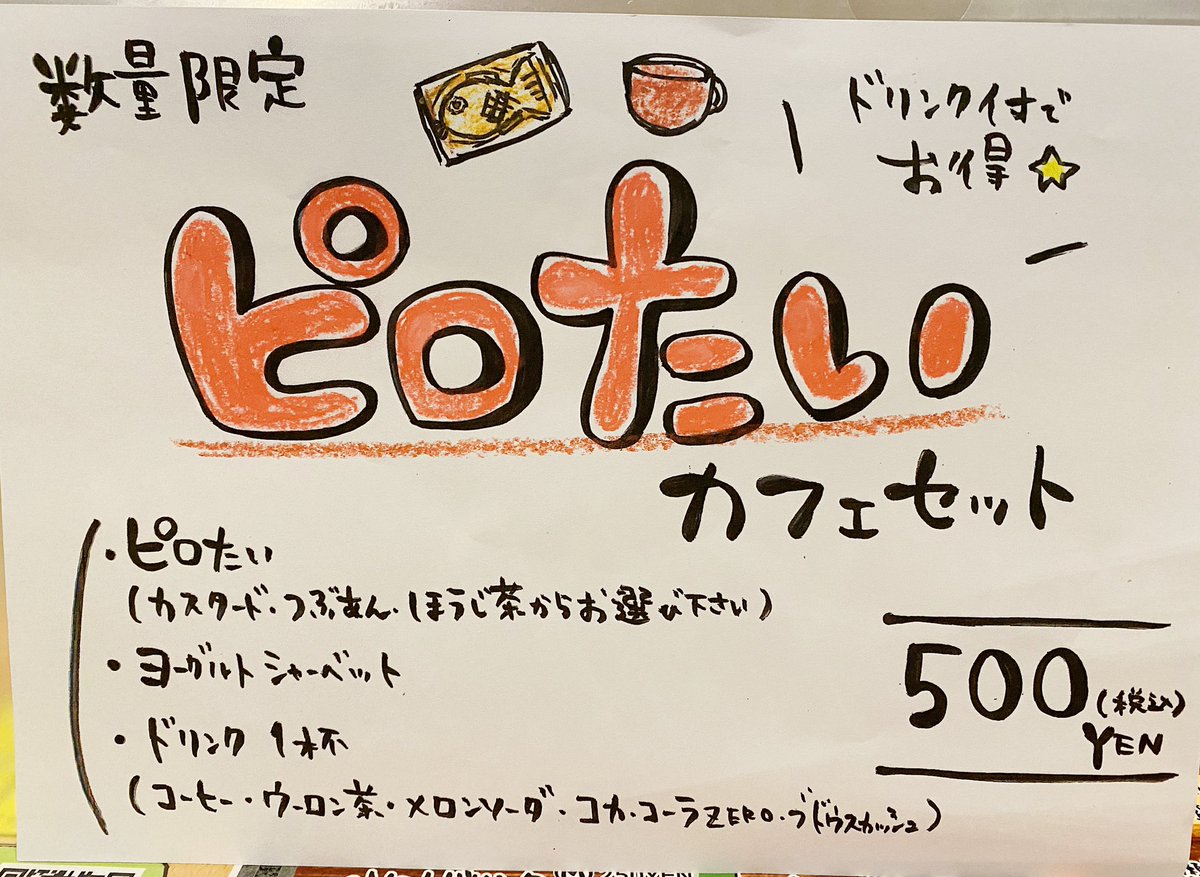 数量限定
睡
ドリンク付で
お得☆
ピロたい
カフェセット
・ピロたい
(カスタード・つぶあん・ほうじ茶からお選び下さい)
・ヨーグルトシャーベット
・ドリンク 1杯
(コーヒー・ウーロン茶・メロンソーダ・コカ・コーラZERO・ブドウスカッシュ)
500(税込)
YEN